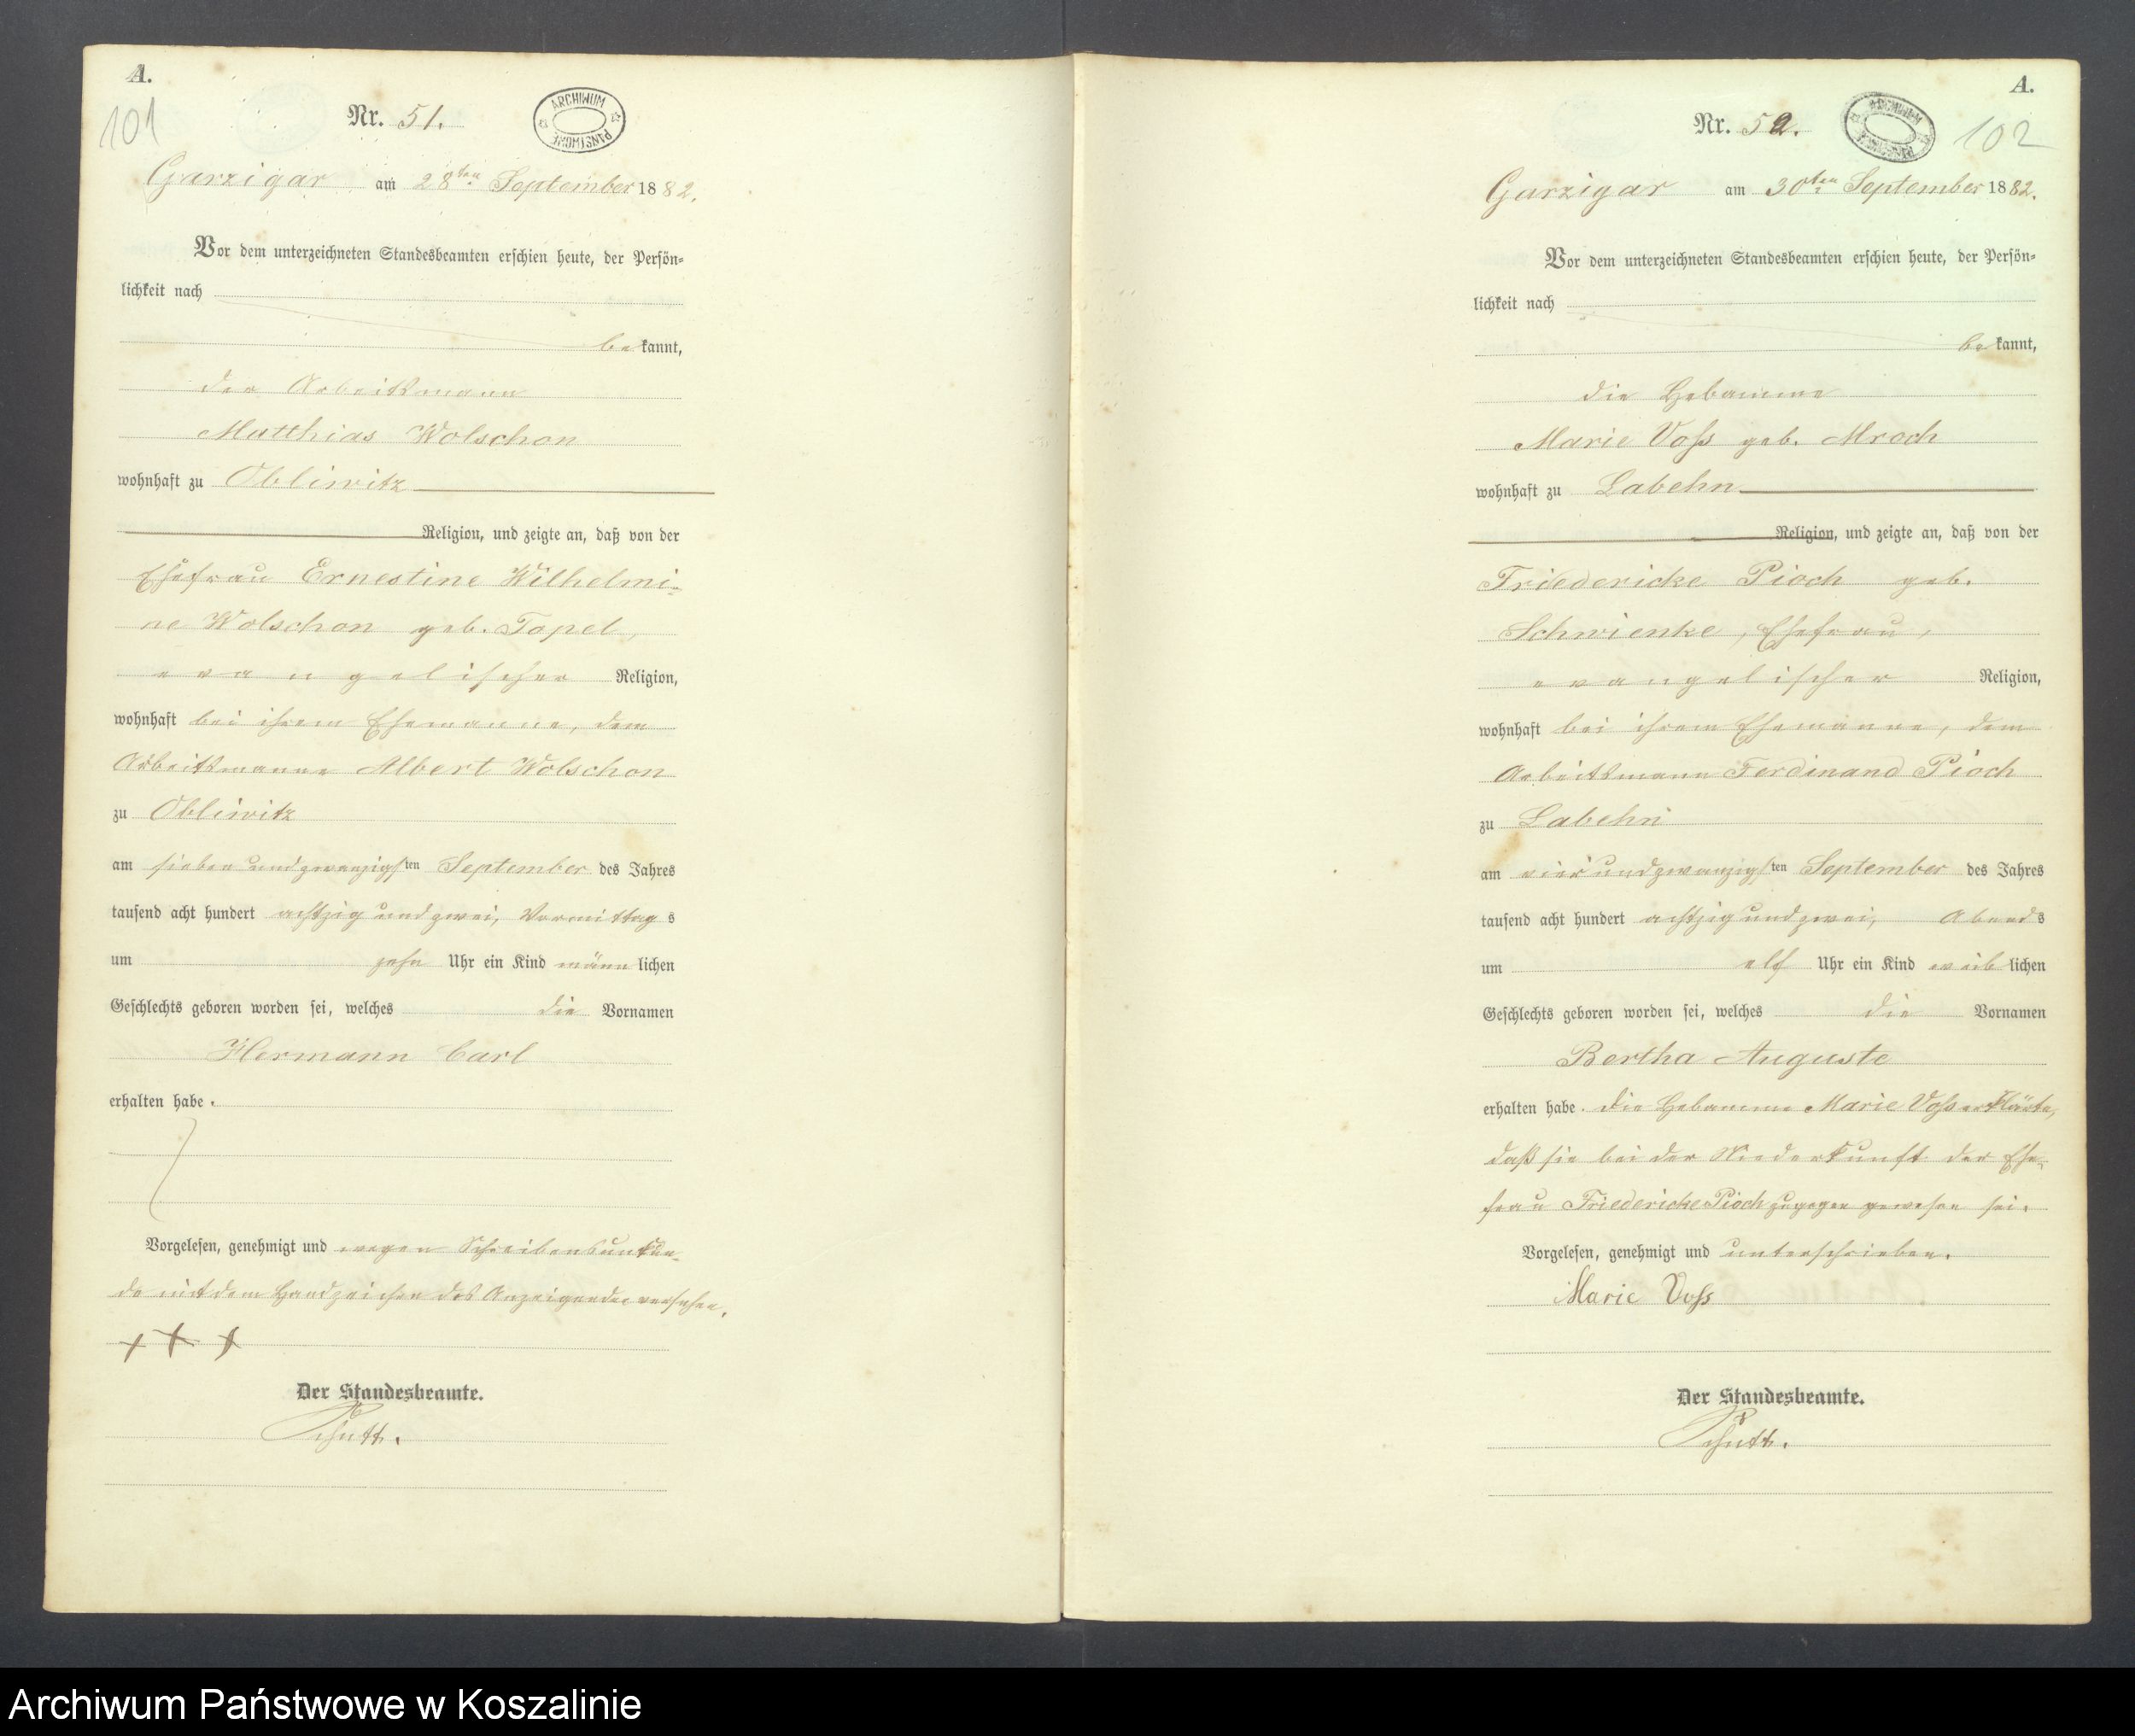 A.
101
Nr. 51.
ARCHIWUM PAŃSTWOWE
Garzigar am 28ten September 1882.
Vor dem unterzeichneten Standesbeamten erschien heute, der Persön-
lichkeit nach
bekannt,
der Arbeitsmann
Matthias Wolschon
wohnhaft zu Obliwitz
Religion, und zeigte an, daß von der
Ehefrau Ernestine Wilhelmi-
ne Wolschon geb. Topel,
evangelischer Religion,
wohnhaft bei ihrem Ehemanne, dem
Arbeitsmanne Albert Wolschon
zu Obliwitz
am sieben und zwanzigsten September des Jahres
tausend acht hundert achtzig und zwei, Vormittags
um zehn Uhr ein Kind männlichen
Geschlechts geboren worden sei, welches die Vornamen
Hermann Carl
erhalten habe.
Vorgelesen, genehmigt und wegen Schreibensunkun-
de mit dem Handzeichen des Anzeigenden versehen.
+ + +
Der Standesbeamte.
Schutt.
A.
Nr. 52.
ARCHIWUM PAŃSTWOWE
102
Garzigar am 30ten September 1882.
Vor dem unterzeichneten Standesbeamten erschien heute, der Persön-
lichkeit nach
bekannt,
die Hebamme
Marie Voß geb. Mroch
wohnhaft zu Labehn
Religion, und zeigte an, daß von der
Friedericke Pioch geb.
Schwienke, Ehefrau,
evangelischer Religion,
wohnhaft bei ihrem Ehemanne, dem
Arbeitsmann Ferdinand Pioch
zu Labehn
am vier und zwanzigsten September des Jahres
tausend acht hundert achtzig und zwei, Abends
um elf Uhr ein Kind weiblichen
Geschlechts geboren worden sei, welches die Vornamen
Bertha Auguste
erhalten habe. Die Hebamme Marie Voß erklärte,
daß sie bei der Niederkunft der Ehe-
frau Friedericke Pioch zugegen gewesen sei.
Vorgelesen, genehmigt und unterschrieben.
Marie Voß
Der Standesbeamte.
Schutt.
Archiwum Państwowe w Koszalinie